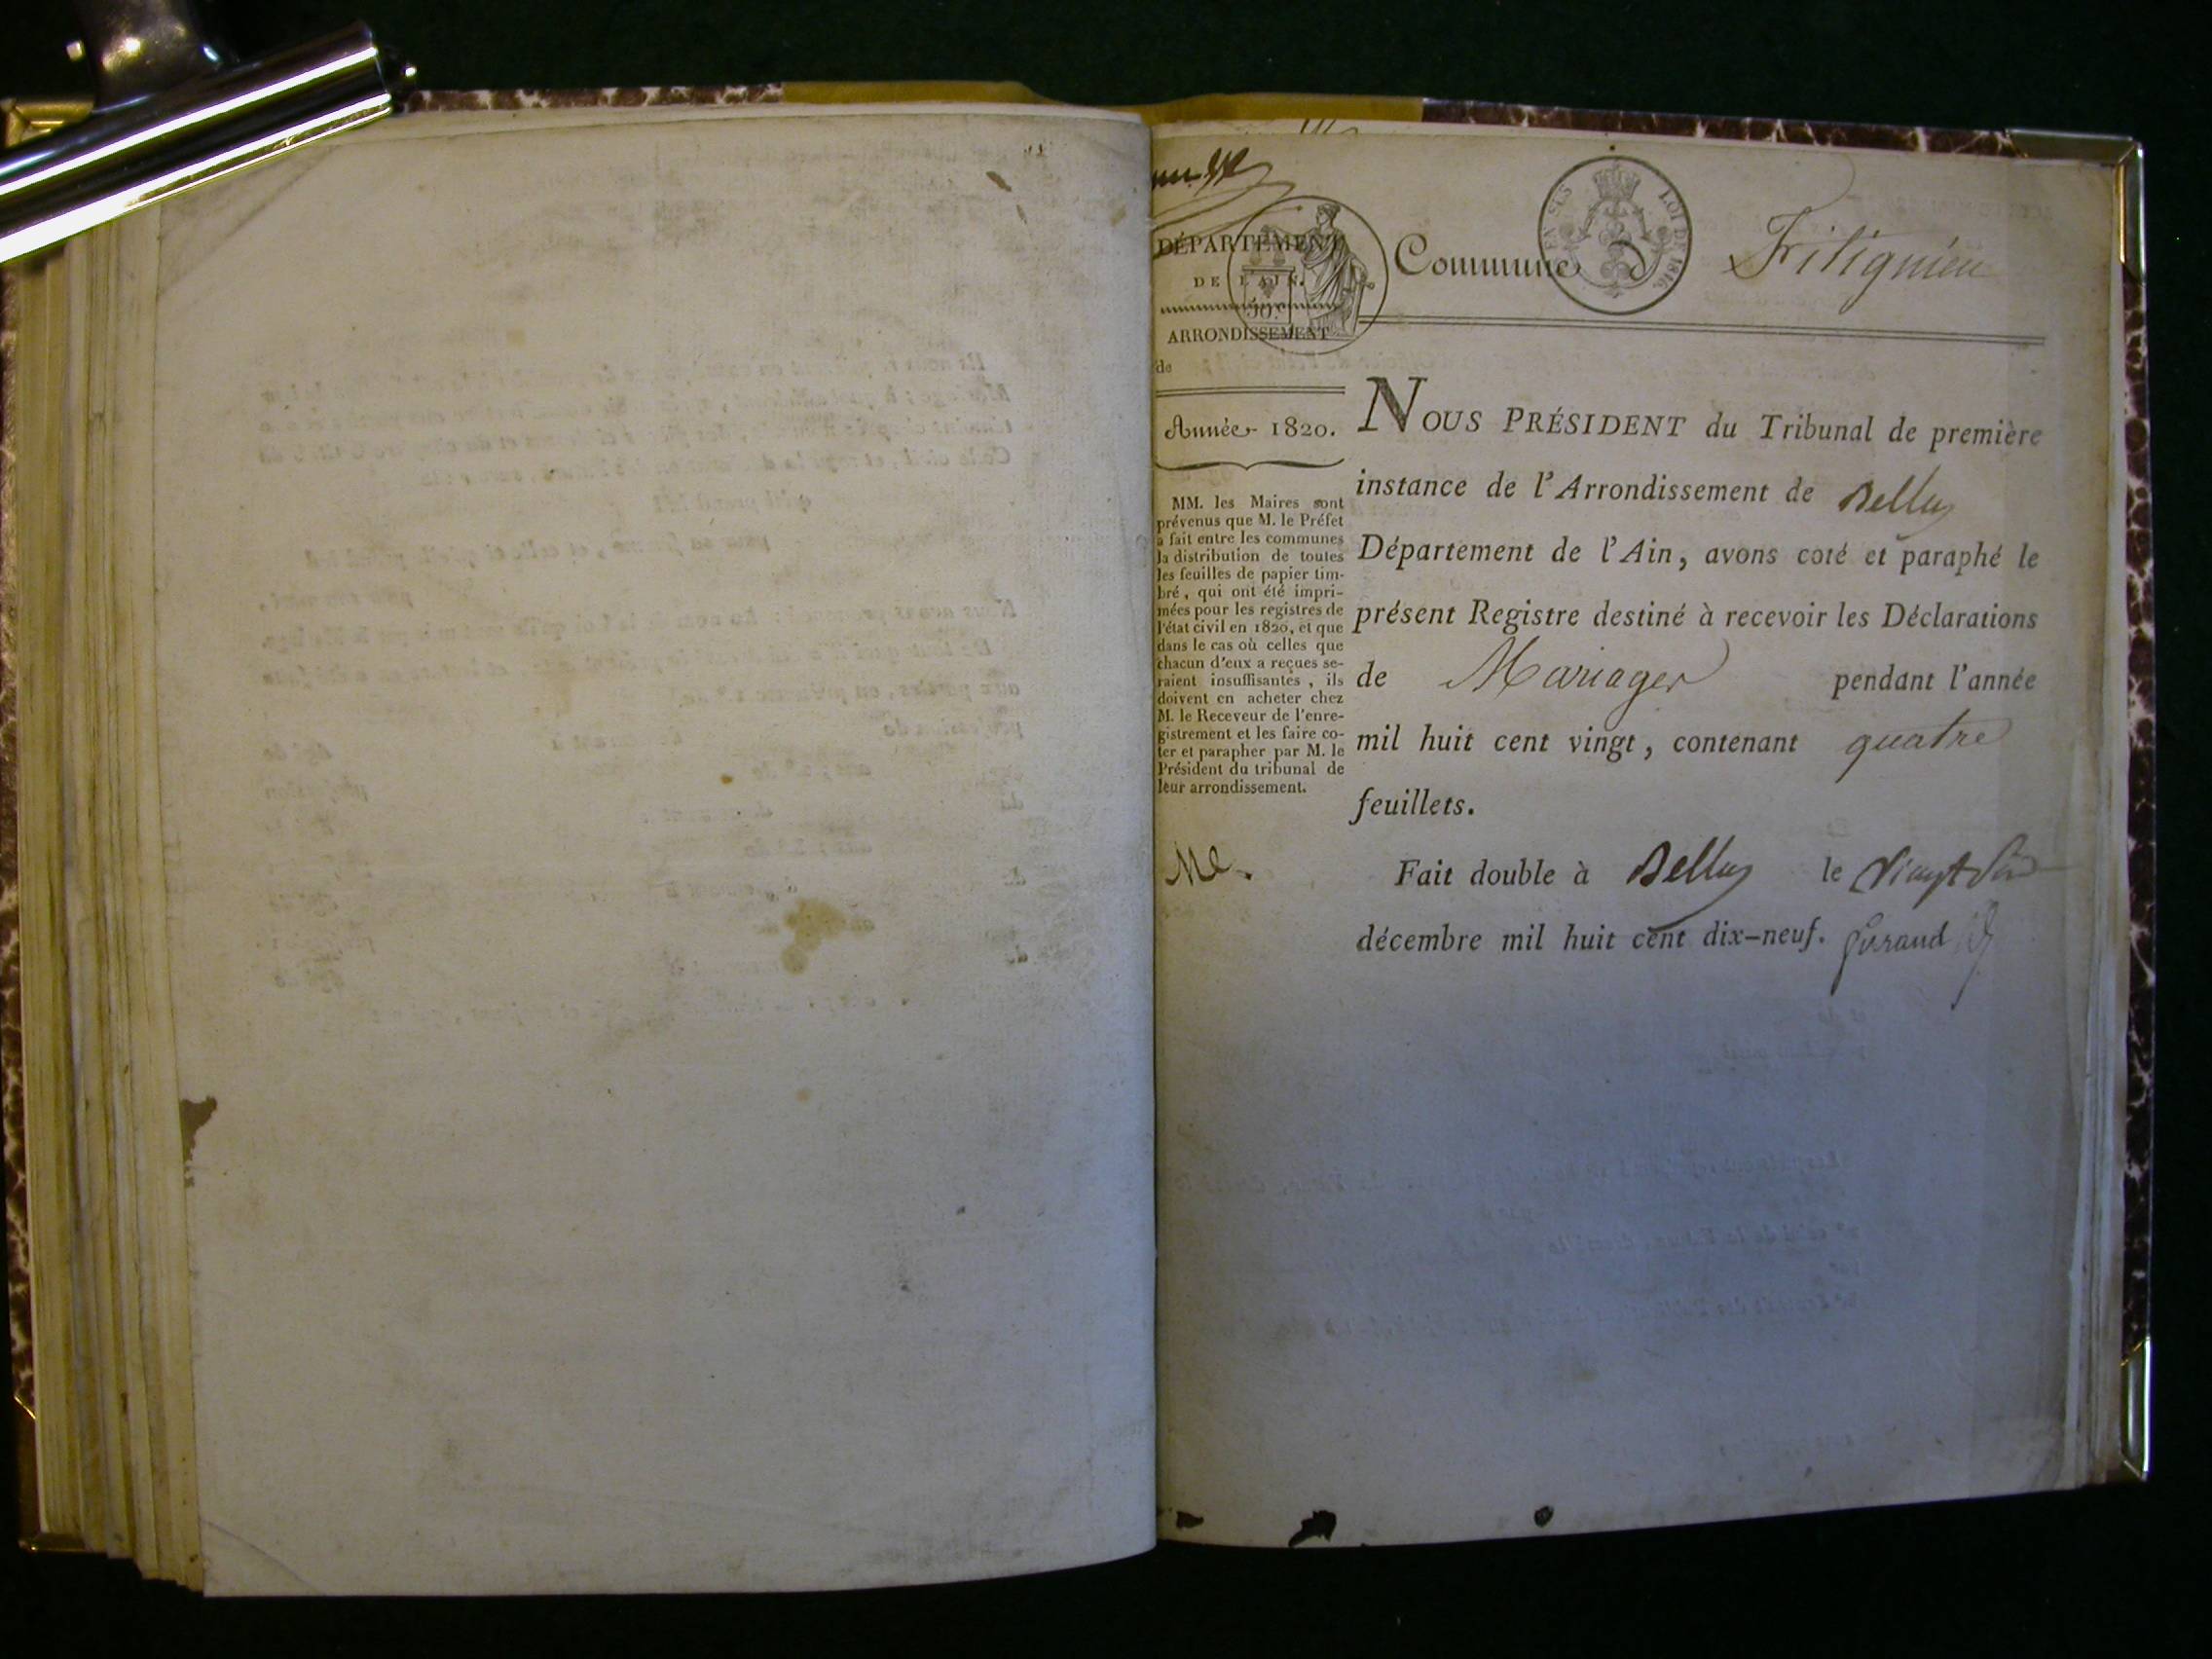 DÉPARTEMENT
DE L'AIN.
50c
ARRONDISSEMENT
de
Année 1820.
MM. les Maires sont
prévenus que M. le Préfet
a fait entre les communes
la distribution de toutes
les feuilles de papier tim-
bré, qui ont été impri-
mées pour les registres de
l'état civil en 1820, et que
dans le cas où celles que
chacun d'eux a reçues se-
raient insuffisantes, ils
doivent en acheter chez
M. le Receveur de l'enre-
gistrement et les faire co-
ter et parapher par M. le
Président du tribunal de
leur arrondissement.
EN SUS LOI DE 1816.
Commune D Fitignieu
NOUS PRÉSIDENT du Tribunal de première
instance de l'Arrondissement de Belley
Département de l'Ain, avons coté et paraphé le
présent Registre destiné à recevoir les Déclarations
de Mariages pendant l'année
mil huit cent vingt, contenant quatre
feuillets.
Fait double à Belley le vingt
décembre mil huit cent dix-neuf.